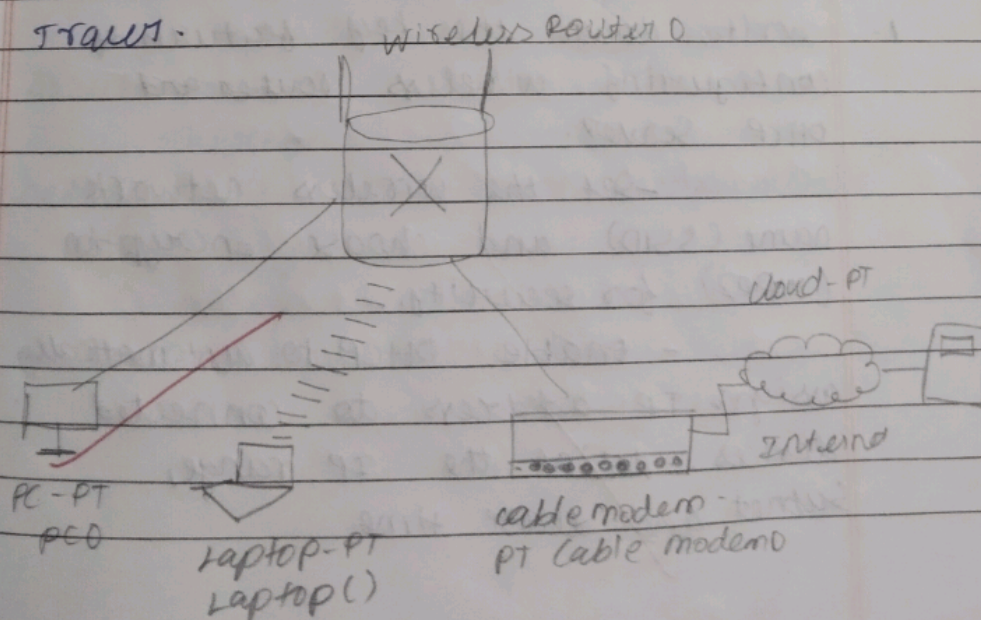 Wireless Router 0
Cloud-PT
Internd
PC-PT
PC0
Laptop-PT
Laptop()
cable modem-
PT Cable Modem0